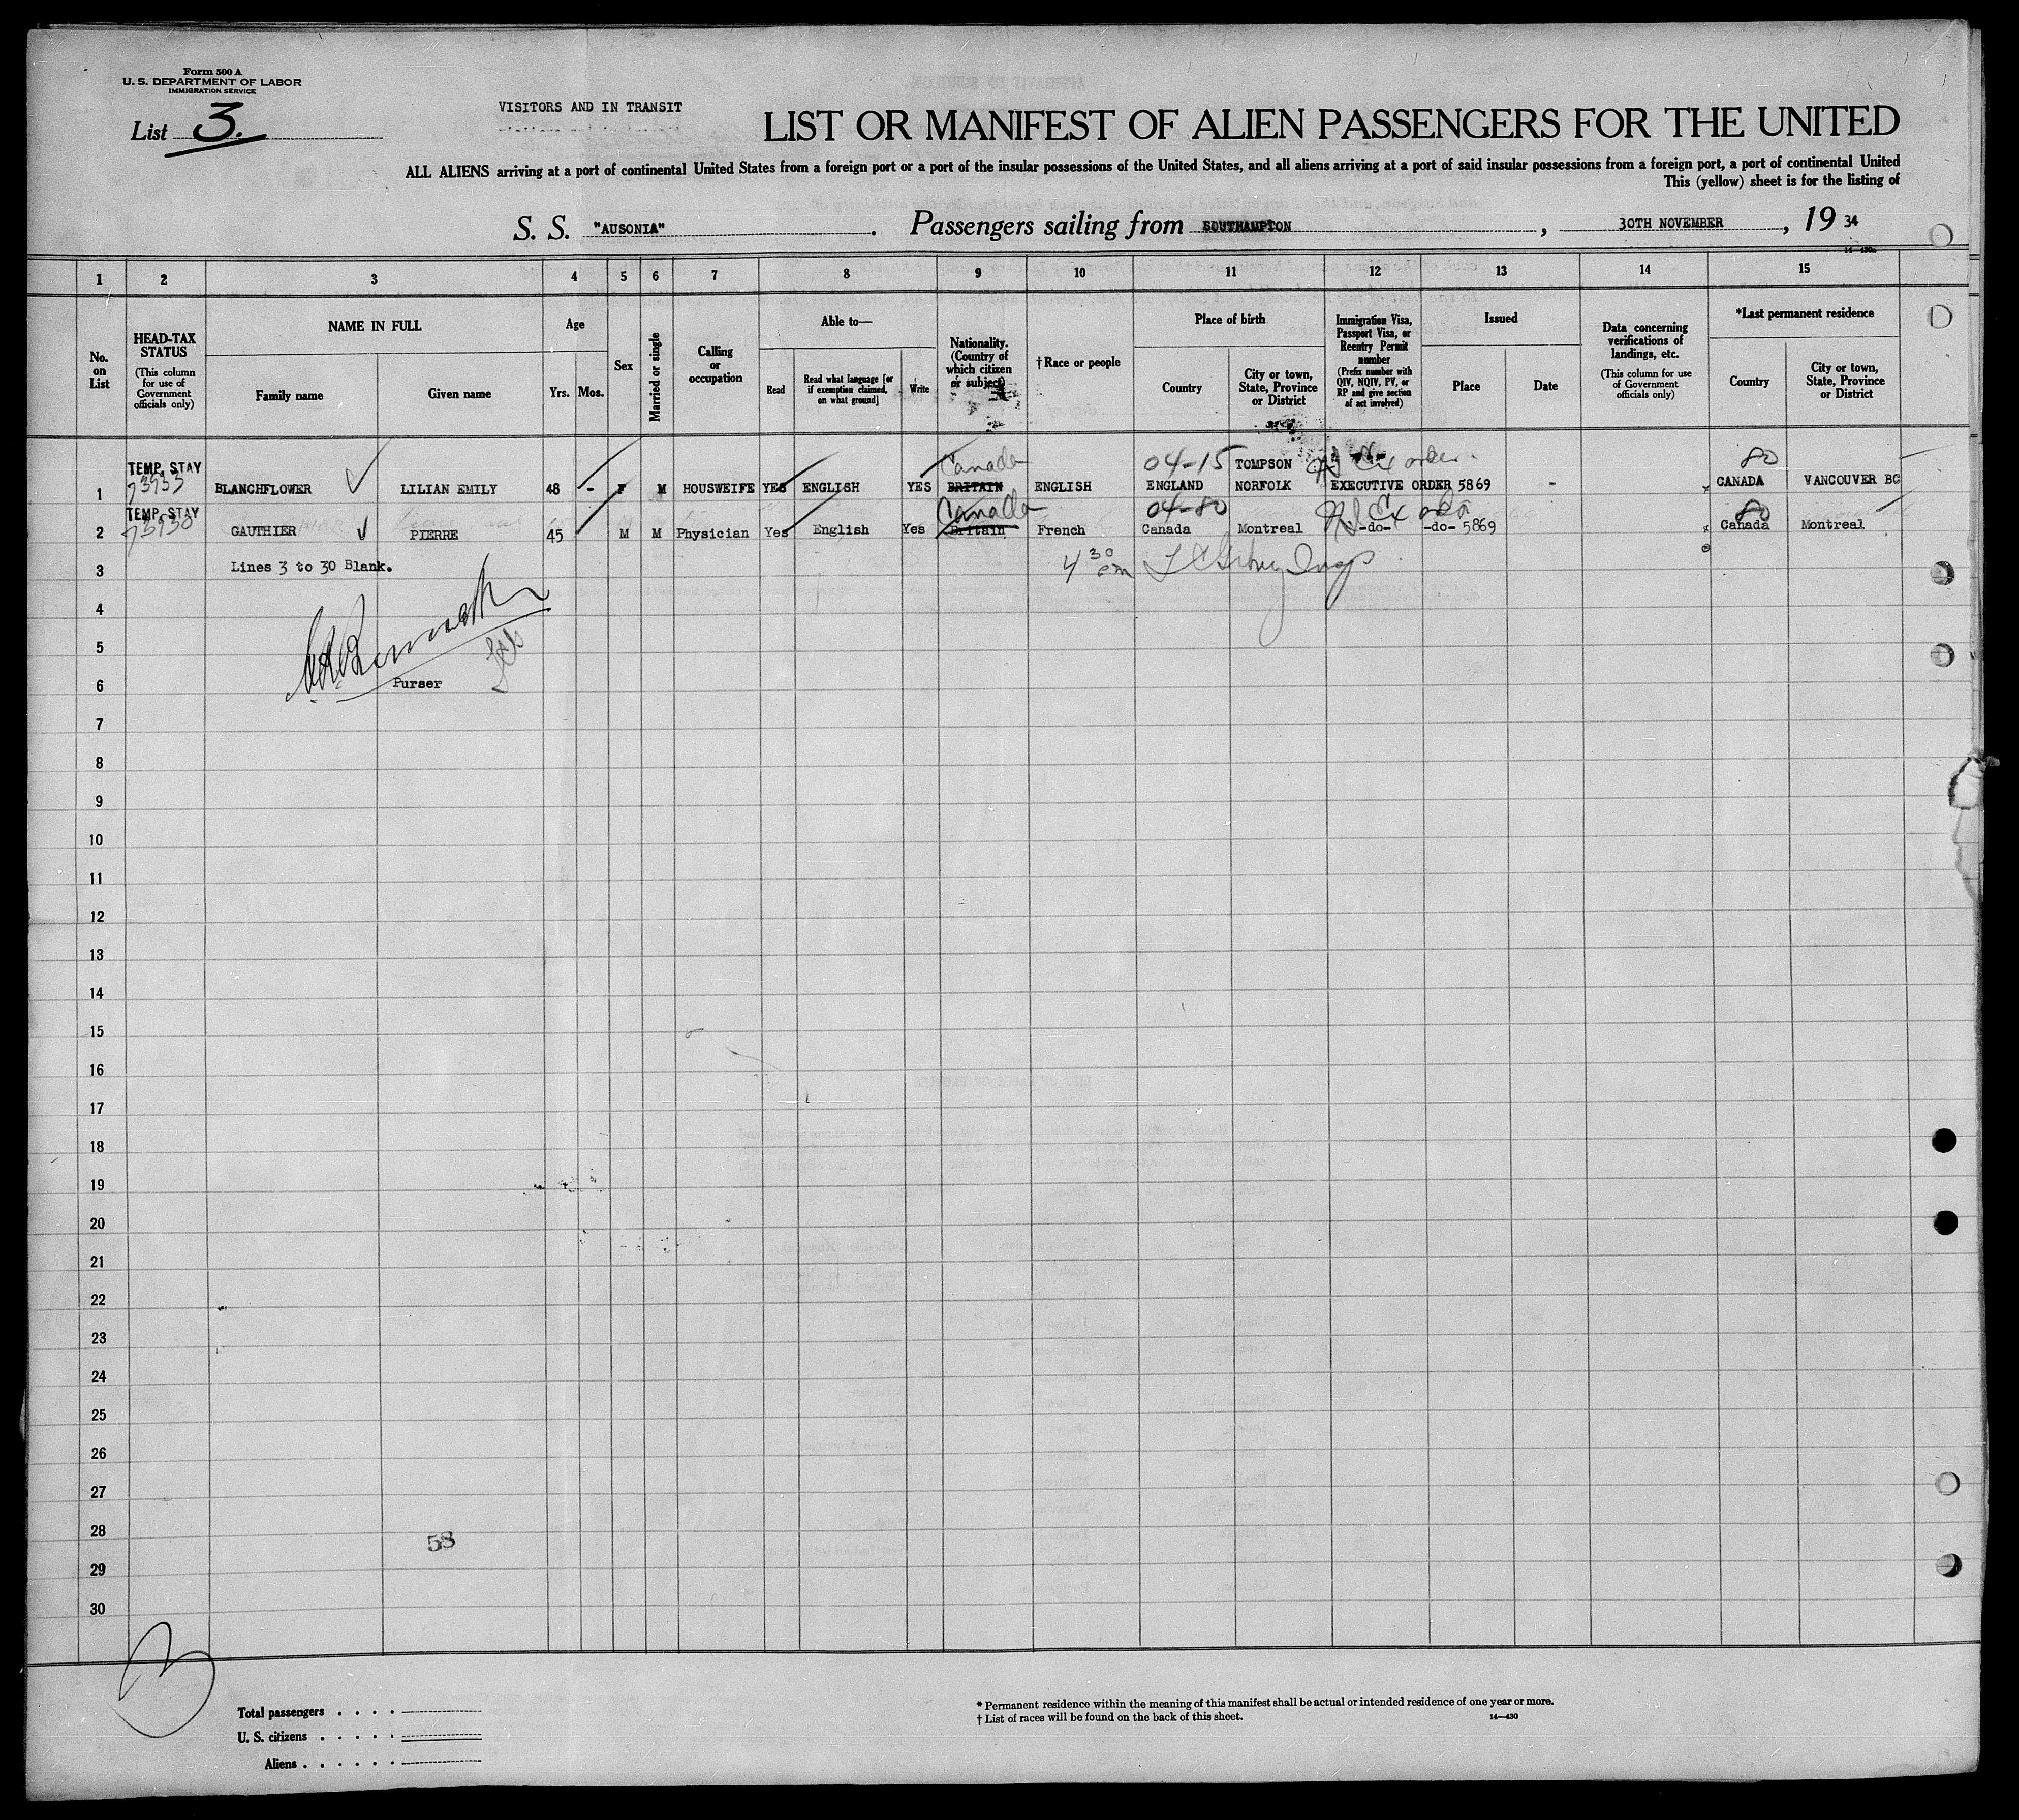 Form 500 A
U. S. DEPARTMENT OF LABOR
IMMIGRATION SERVICE
List 3.
VISITORS AND IN TRANSIT
LIST OR MANIFEST OF ALIEN PASSENGERS FOR THE UNITED
ALL ALIENS arriving at a port of continental United States from a foreign port or a port of the insular possessions of the United States, and all aliens arriving at a port of said insular possessions from a foreign port, a port of continental United
This (yellow) sheet is for the listing of
S. S. "AUSONIA". Passengers sailing from SOUTHAMPTON, 30TH NOVEMBER, 19 34
1 2 3 4 5 6 7 8 9 10 11 12 13 14 15
No. on List
HEAD-TAX STATUS
(This column for use of Government officials only)
NAME IN FULL
Family name
Given name
Age
Yrs. Mos.
Sex
Married or single
Calling or occupation
Able to—
Read
Read what language [or if exemption claimed, on what ground]
Write
Nationality. (Country of which citizen or subject)
† Race or people
Place of birth
Country
City or town, State, Province or District
Immigration Visa, Passport Visa, or Reentry Permit number
(Prefix number with QIV, NQIV, PV, or RP and give section of act involved)
Issued
Place
Date
Data concerning verifications of landings, etc.
(This column for use of Government officials only)
*Last permanent residence
Country
City or town, State, Province or District
TEMP. STAY Canada 04-15 TOMPSON Ex order. 80
1 BLANCHFLOWER LILIAN EMILY 48 - F M HOUSWEIFE YES ENGLISH YES BRITAIN ENGLISH ENGLAND NORFOLK EXECUTIVE ORDER 5869 - CANADA VANCOUVER BC
TEMP. STAY Canada 04-80 Ex 80
2 GAUTHIER PIERRE 45 M M Physician Yes English Yes Britain French Canada Montreal -do- -do- 5869 Canada Montreal
3 Lines 3 to 30 Blank. 4 30 pm
4
5
6 Purser
7
8
9
10
11
12
13
14
15
16
17
18
19
20
21
22
23
24
25
26
27
28 58
29
30
3
Total passengers . . . .
U. S. citizens . . . . .
Aliens . . . . . .
* Permanent residence within the meaning of this manifest shall be actual or intended residence of one year or more.
† List of races will be found on the back of this sheet.
14—430